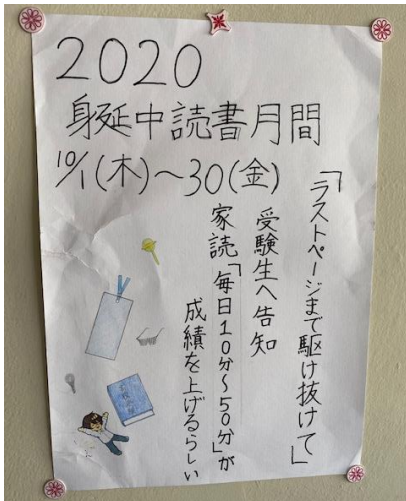 2020
身延中読書月間
10/1(木)～30(金)
「ラストページまで駆け抜けて」
受験生へ告知
家読「毎日10分～50分」が
成績を上げるらしい